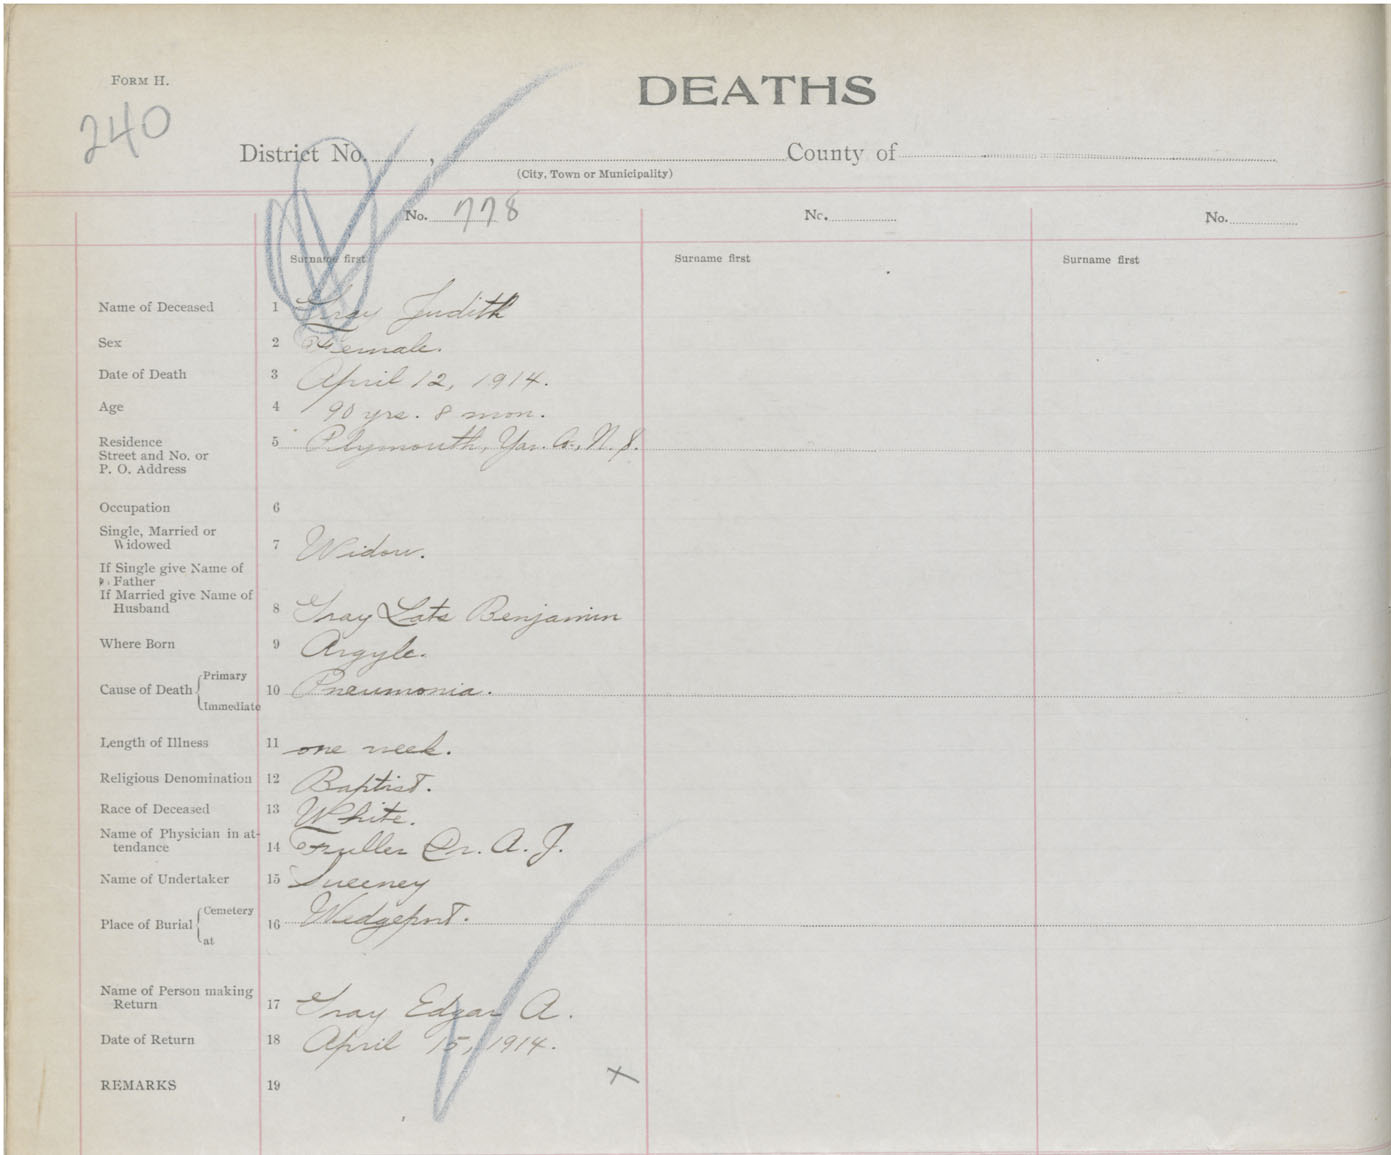 FORM H.
DEATHS
240
District No. , County of
(City, Town or Municipality)
No. 778 No. No.
Surname first Surname first Surname first
Name of Deceased 1 Gray Judith
Sex 2 Female.
Date of Death 3 April 12, 1914.
Age 4 90 yrs. 8 mon.
Residence 5 Plymouth, Yar. Co., N.S.
Street and No. or
P. O. Address
Occupation 6
Single, Married or
Widowed 7 Widow.
If Single give Name of
Father
If Married give Name of
Husband 8 Gray Late Benjamin
Where Born 9 Argyle.
Primary
Cause of Death 10 Pneumonia.
Immediate
Length of Illness 11 one week.
Religious Denomination 12 Baptist.
Race of Deceased 13 White.
Name of Physician in at-
tendance 14 Fuller Dr. A. J.
Name of Undertaker 15 Sweeney
Cemetery
Place of Burial 16 Wedgeport.
at
Name of Person making
Return 17 Gray Edgar A.
Date of Return 18 April 15, 1914.
REMARKS 19